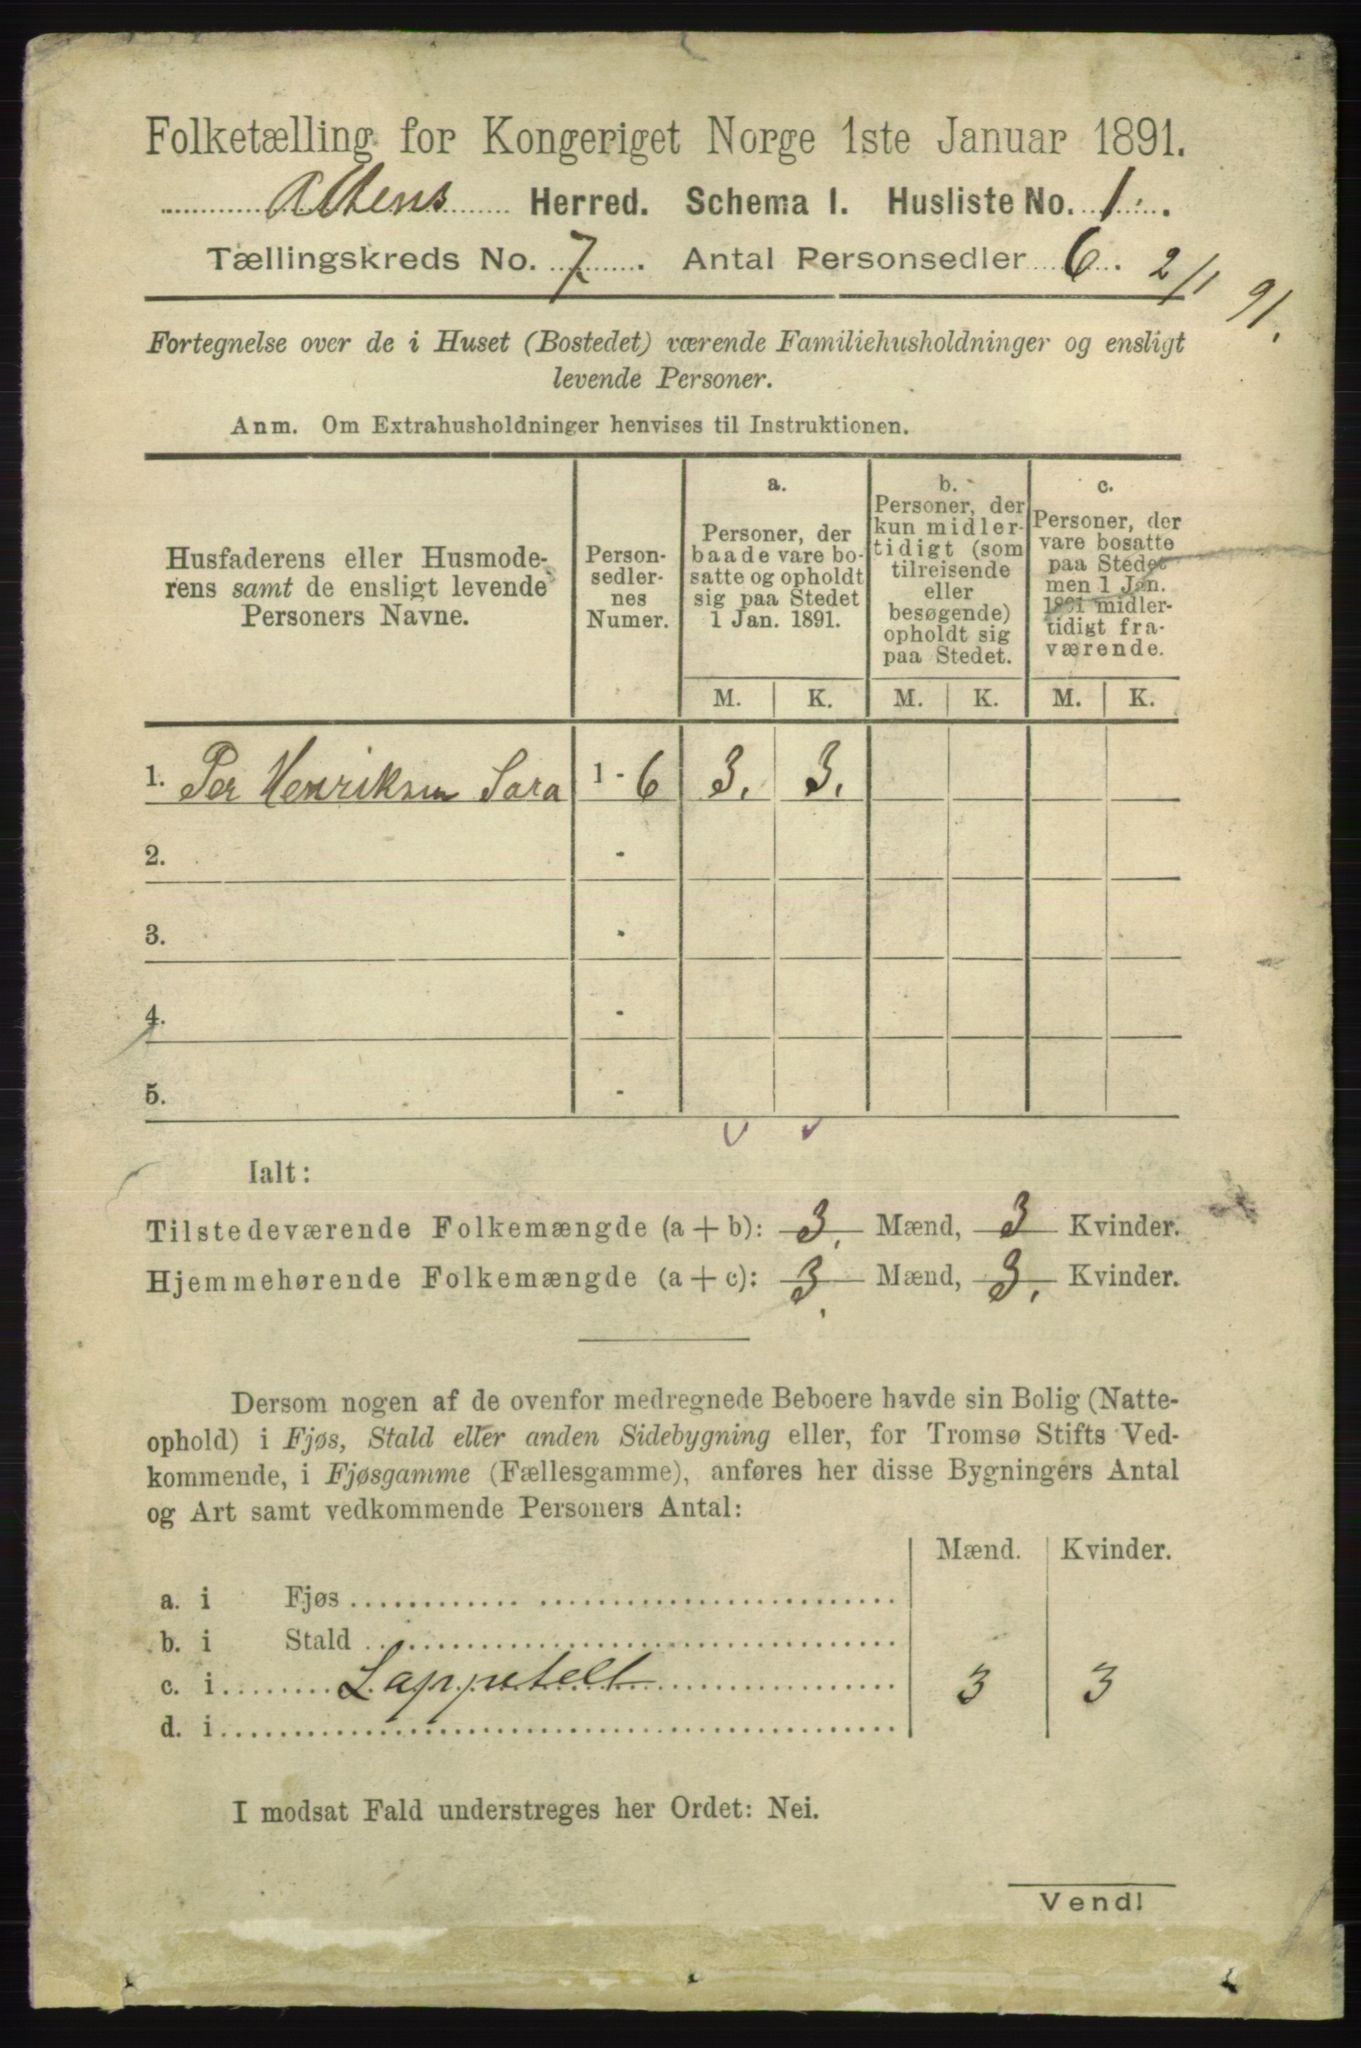 Folketælling for Kongeriget Norge 1ste Januar 1891.
Altens Herred. Schema I. Husliste No. 1.
Tællingskreds No. 7. Antal Personsedler 6. 2/1 91.
Fortegnelse over de i Huset (Bostedet) værende Familiehusholdninger og ensligt
levende Personer.
Anm. Om Extrahusholdninger henvises til Instruktionen.
Husfaderens eller Husmode-
rens samt de ensligt levende
Personers Navne.
Person-
sedler-
nes
Numer.
a.
Personer, der
baade vare bo-
satte og opholdt
sig paa Stedet
1 Jan. 1891.
b.
Personer, der
kun midler-
tidigt (som
tilreisende
eller
besøgende)
opholdt sig
paa Stedet.
c.
Personer, der
vare bosatte
paa Stedet
men 1 Jan.
1891 midler-
tidigt fra-
værende.
M. K. M. K. M. K.
1. Per Henriksen Sara 1 - 6 3. 3.
2. -
3. -
4. -
5. -
Ialt:
Tilstedeværende Folkemængde (a + b): 3. Mænd, 3 Kvinder.
Hjemmehørende Folkemængde (a + c): 3. Mænd, 3. Kvinder.
Dersom nogen af de ovenfor medregnede Beboere havde sin Bolig (Natte-
ophold) i Fjøs, Stald eller anden Sidebygning eller, for Tromsø Stifts Ved-
kommende, i Fjøsgamme (Fællesgamme), anføres her disse Bygningers Antal
og Art samt vedkommende Personers Antal:
Mænd. Kvinder.
a. i Fjøs
b. i Stald
c. i Lappetelt 3 3
d. i
I modsat Fald understreges her Ordet: Nei.
Vend!